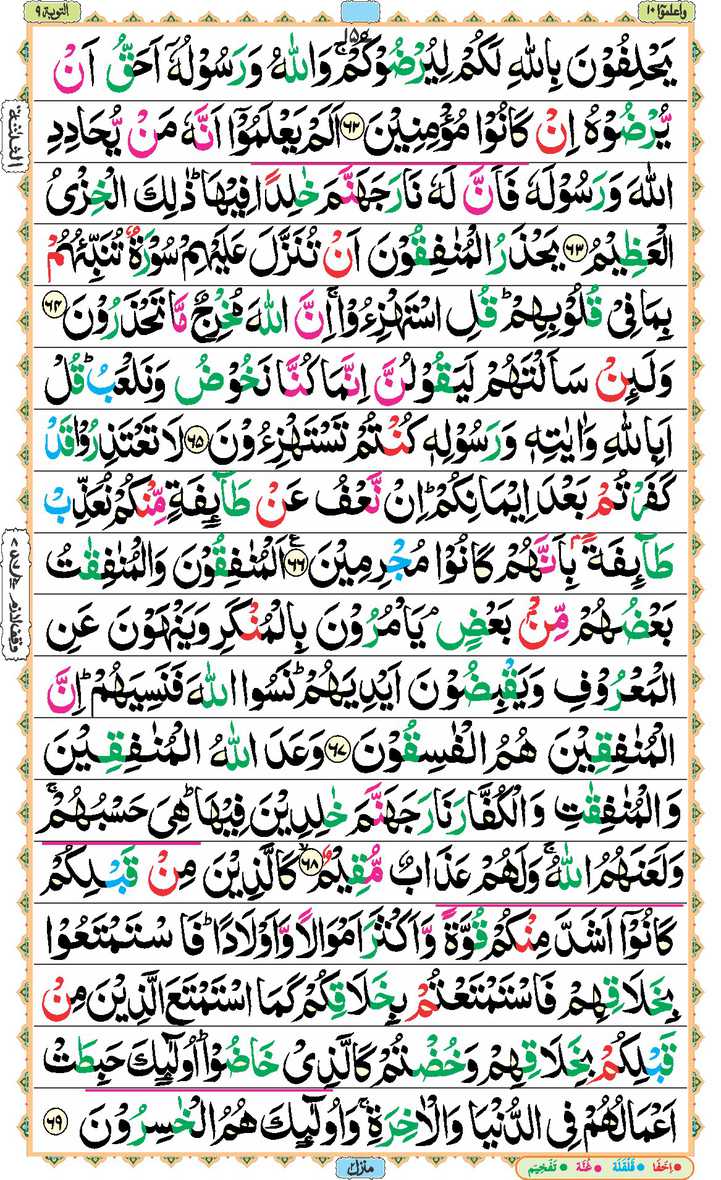 واعلموا ١٠
١٥٨
التوبة ٩
يَحْلِفُوْنَ بِاللّٰهِ لَكُمْ لِيُرْضُوْكُمْ ۚ وَاللّٰهُ وَرَسُوْلُهٗۤ اَحَقُّ اَنْ
يُّرْضُوْهُ اِنْ كَانُوْا مُؤْمِنِيْنَ ﴿۶۲﴾ اَلَمْ يَعْلَمُوْۤا اَنَّهٗ مَنْ يُّحَادِدِ
اللّٰهَ وَرَسُوْلَهٗ فَاَنَّ لَهٗ نَارَ جَهَنَّمَ خٰلِدًا فِيْهَا ؕ ذٰلِكَ الْخِزْیُ
الْعَظِيْمُ ﴿۶۳﴾ يَحْذَرُ الْمُنٰفِقُوْنَ اَنْ تُنَزَّلَ عَلَيْهِمْ سُوْرَةٌ تُنَبِّئُهُمْ
بِمَا فِیْ قُلُوْبِهِمْ ؕ قُلِ اسْتَهْزِءُوْا ۚ اِنَّ اللّٰهَ مُخْرِجٌ مَّا تَحْذَرُوْنَ ﴿۶۴﴾
وَلَئِنْ سَاَلْتَهُمْ لَيَقُوْلُنَّ اِنَّمَا كُنَّا نَخُوْضُ وَنَلْعَبُ ؕ قُلْ
اَبِاللّٰهِ وَاٰيٰتِهٖ وَرَسُوْلِهٖ كُنْتُمْ تَسْتَهْزِءُوْنَ ﴿۶۵﴾ لَا تَعْتَذِرُوْا قَدْ
كَفَرْتُمْ بَعْدَ اِيْمَانِكُمْ ؕ اِنْ نَّعْفُ عَنْ طَآئِفَةٍ مِّنْكُمْ نُعَذِّبْ
طَآئِفَةًۢ بِاَنَّهُمْ كَانُوْا مُجْرِمِيْنَ ﴿۶۶﴾ اَلْمُنٰفِقُوْنَ وَالْمُنٰفِقٰتُ
بَعْضُهُمْ مِّنْۢ بَعْضٍ ۘ يَاْمُرُوْنَ بِالْمُنْكَرِ وَيَنْهَوْنَ عَنِ
الْمَعْرُوْفِ وَيَقْبِضُوْنَ اَيْدِيَهُمْ ؕ نَسُوا اللّٰهَ فَنَسِيَهُمْ ؕ اِنَّ
الْمُنٰفِقِيْنَ هُمُ الْفٰسِقُوْنَ ﴿۶۷﴾ وَعَدَ اللّٰهُ الْمُنٰفِقِيْنَ
وَالْمُنٰفِقٰتِ وَالْكُفَّارَ نَارَ جَهَنَّمَ خٰلِدِيْنَ فِيْهَا ؕ هِیَ حَسْبُهُمْ ۚ
وَلَعَنَهُمُ اللّٰهُ ۚ وَلَهُمْ عَذَابٌ مُّقِيْمٌ ﴿۶۸﴾ كَالَّذِيْنَ مِنْ قَبْلِكُمْ
كَانُوْۤا اَشَدَّ مِنْكُمْ قُوَّةً وَّاَكْثَرَ اَمْوَالًا وَّاَوْلَادًا ؕ فَاسْتَمْتَعُوْا
بِخَلَاقِهِمْ فَاسْتَمْتَعْتُمْ بِخَلَاقِكُمْ كَمَا اسْتَمْتَعَ الَّذِيْنَ مِنْ
قَبْلِكُمْ بِخَلَاقِهِمْ وَخُضْتُمْ كَالَّذِیْ خَاضُوْا ؕ اُولٰٓئِكَ حَبِطَتْ
اَعْمَالُهُمْ فِی الدُّنْيَا وَالْاٰخِرَةِ ۚ وَاُولٰٓئِكَ هُمُ الْخٰسِرُوْنَ ﴿۶۹﴾
منزل ٢
اِخفَا قَلْقَلَه غُنَّه تَفْخِيْم